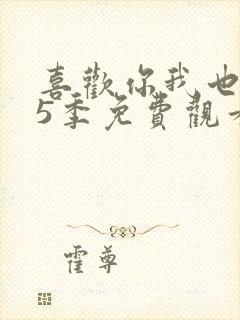 喜歡你我也
5季免費觀看
霍尊